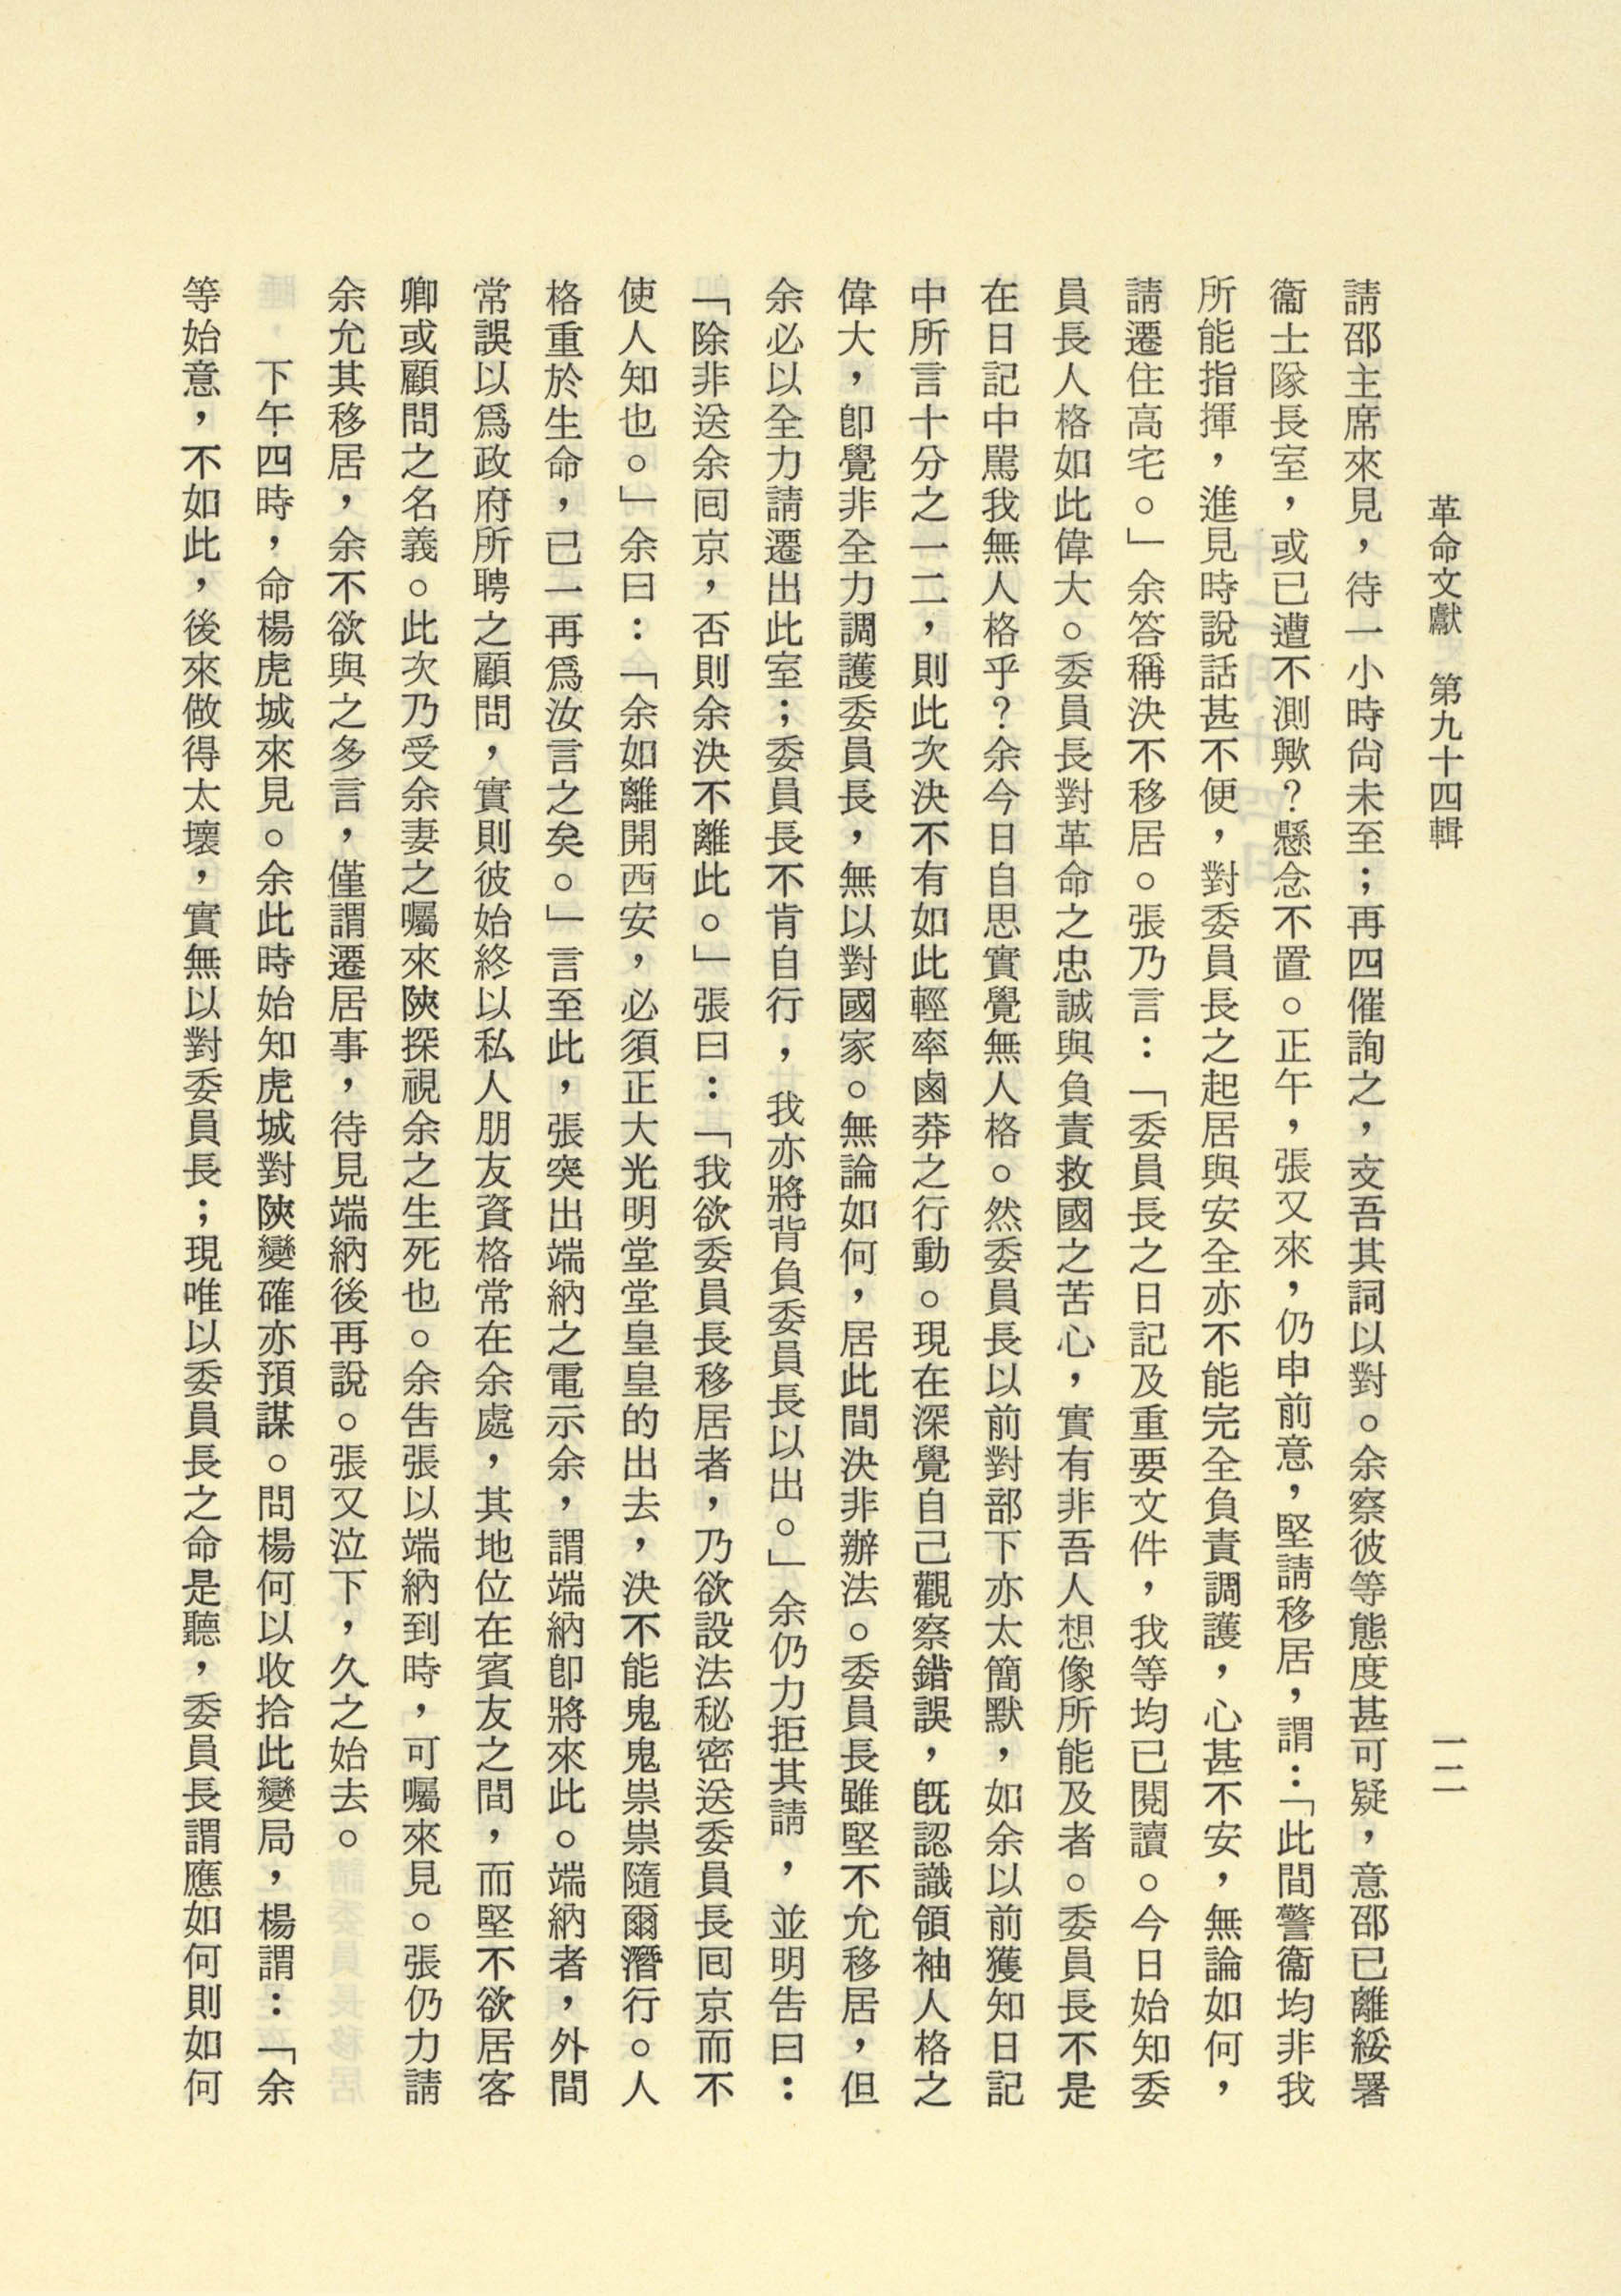 革命文獻　第九十四輯　一二
請邵主席來見，待一小時尙未至；再四催詢之，支吾其詞以對。余察彼等態度甚可疑，意邵已離綏署
衞士隊長室，或已遭不測歟？懸念不置。正午，張又來，仍申前意，堅請移居，謂：「此間警衞均非我
所能指揮，進見時說話甚不便，對委員長之起居與安全亦不能完全負責調護，心甚不安，無論如何，
請遷住高宅。」余答稱決不移居。張乃言：「委員長之日記及重要文件，我等均已閱讀。今日始知委
員長人格如此偉大。委員長對革命之忠誠與負責救國之苦心，實有非吾人想像所能及者。委員長不是
在日記中駡我無人格乎？余今日自思實覺無人格。然委員長以前對部下亦太簡默，如余以前獲知日記
中所言十分之一二，則此次決不有如此輕率鹵莽之行動。現在深覺自己觀察錯誤，旣認識領袖人格之
偉大，卽覺非全力調護委員長，無以對國家。無論如何，居此間決非辦法。委員長雖堅不允移居，但
余必以全力請遷出此室；委員長不肯自行，我亦將背負委員長以出。」余仍力拒其請，並明告曰：
「除非送余囘京，否則余決不離此。」張曰：「我欲委員長移居者，乃欲設法秘密送委員長囘京而不
使人知也。」余曰：「余如離開西安，必須正大光明堂堂皇皇的出去，決不能鬼鬼祟祟隨爾潛行。人
格重於生命，已一再爲汝言之矣。」言至此，張突出端納之電示余，謂端納卽將來此。端納者，外間
常誤以爲政府所聘之顧問，實則彼始終以私人朋友資格常在余處，其地位在賓友之間，而堅不欲居客
卿或顧問之名義。此次乃受余妻之囑來陝探視余之生死也。余吿張以端納到時，可囑來見。張仍力請
余允其移居，余不欲與之多言，僅謂遷居事，待見端納後再說。張又泣下，久之始去。
　　下午四時，命楊虎城來見。余此時始知虎城對陝變確亦預謀。問楊何以收拾此變局，楊謂：「余
等始意，不如此，後來做得太壞，實無以對委員長；現唯以委員長之命是聽，委員長謂應如何則如何